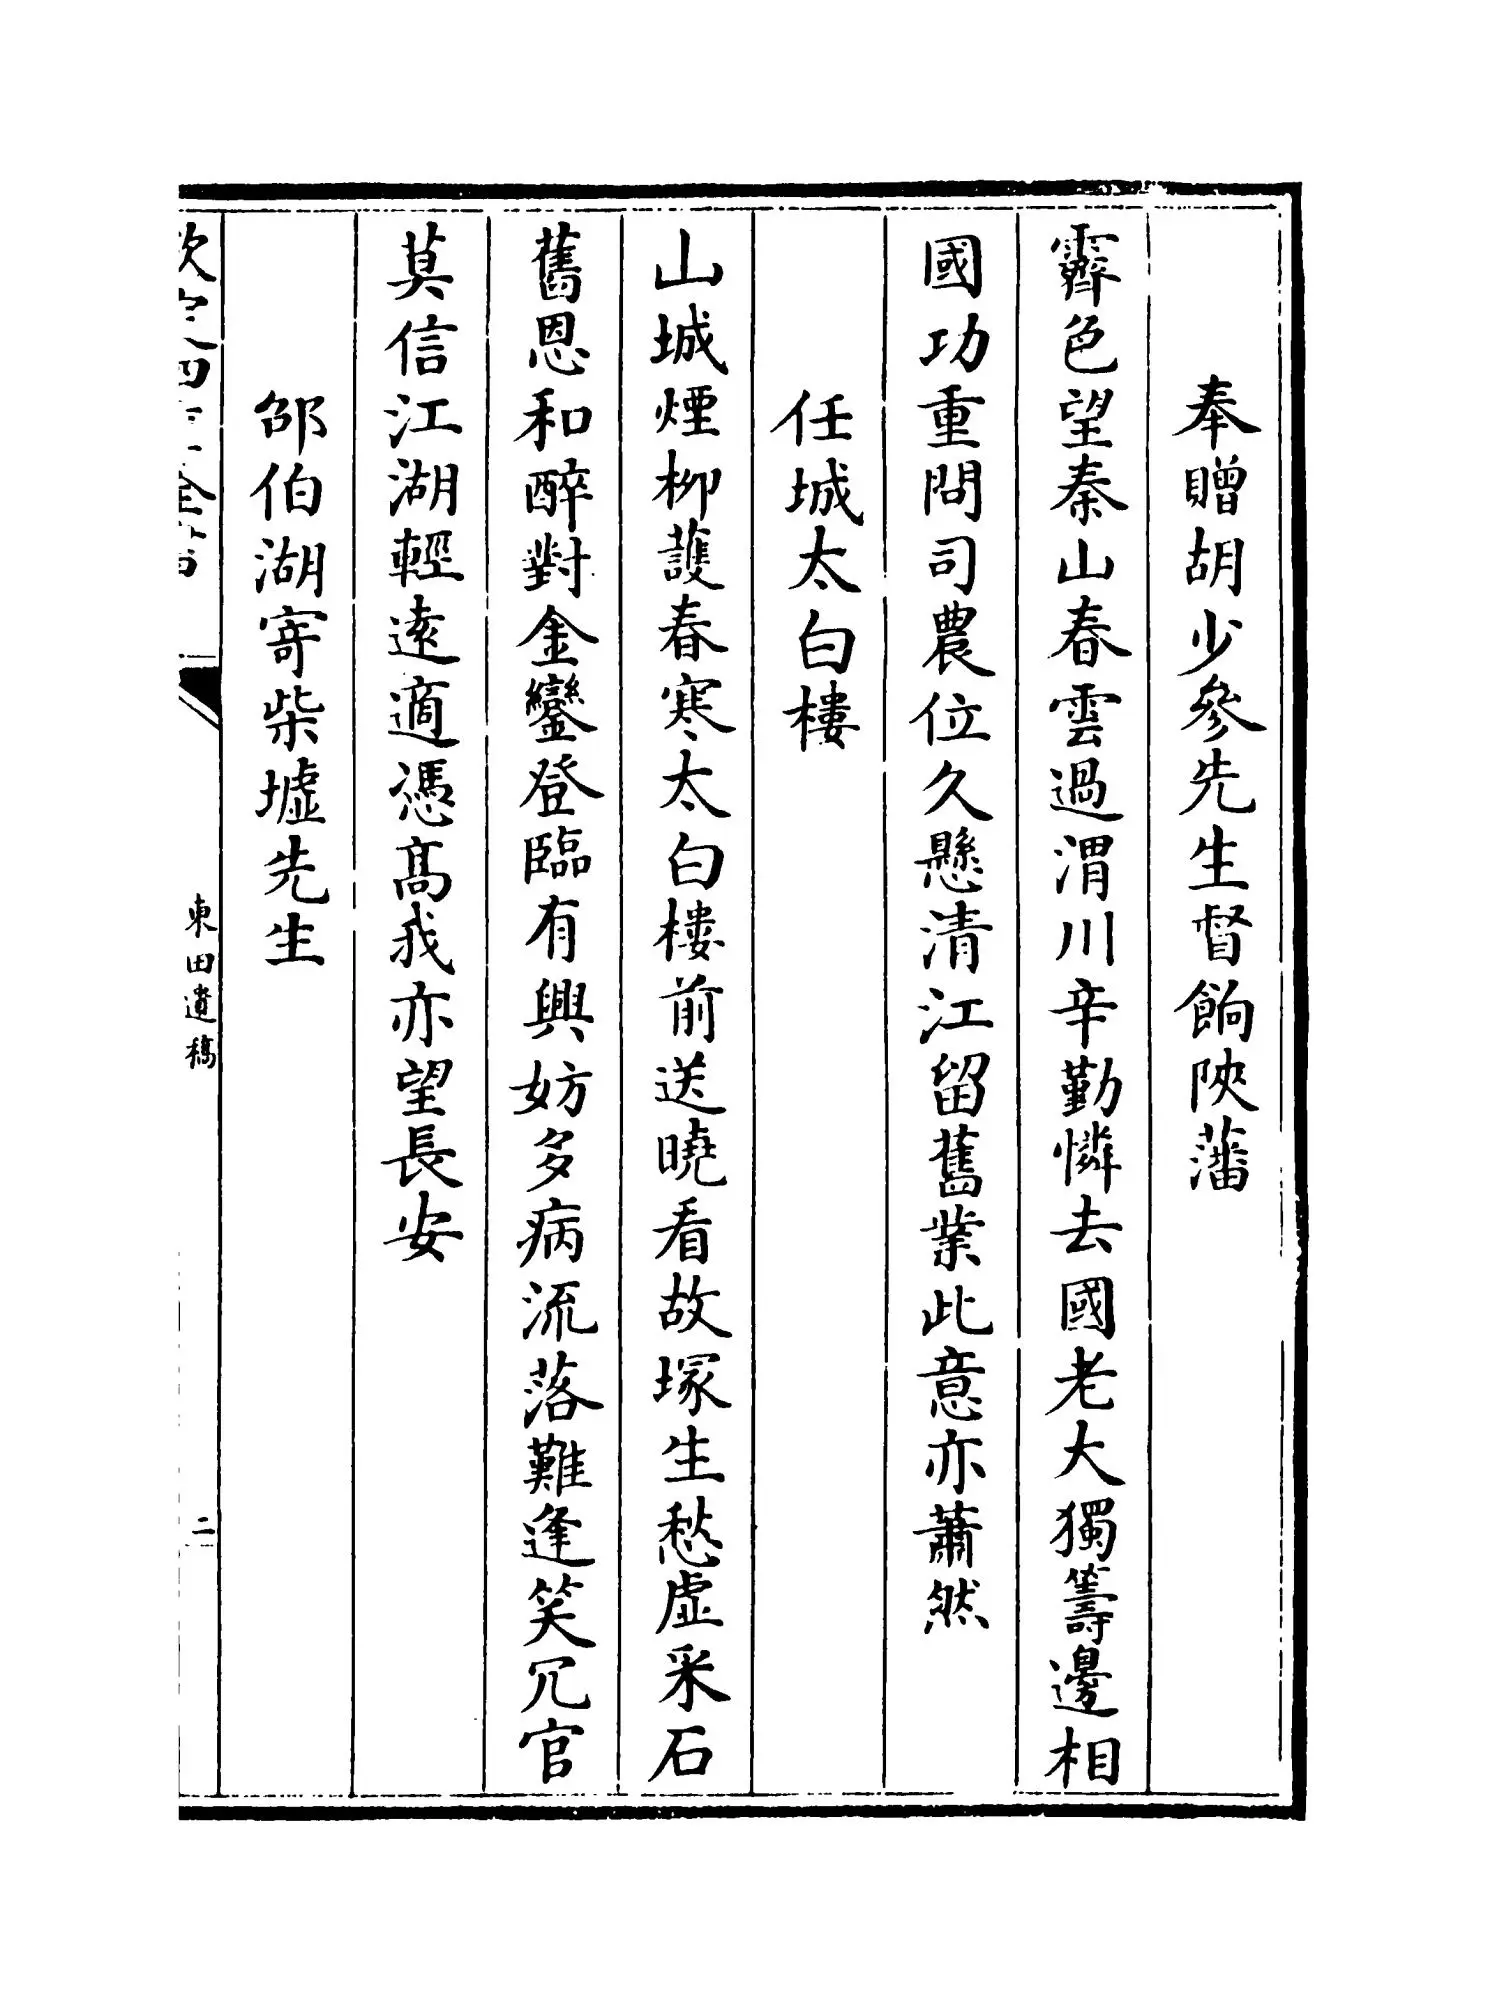 奉贈胡少參先生督餉陜藩
霽色望秦山春雲過渭川辛勤憐去國老大獨籌邊相
國功重問司農位久懸清江留舊業此意亦蕭然
任城太白樓
山城煙柳護春寒太白樓前送曉看故塚生愁虛采石
舊恩和醉對金鑾登臨有興妨多病流落難逢笑冗官
莫信江湖輕遠適憑高我亦望長安
邵伯湖寄柴墟先生
欽定四庫全書
東田遺稿
二